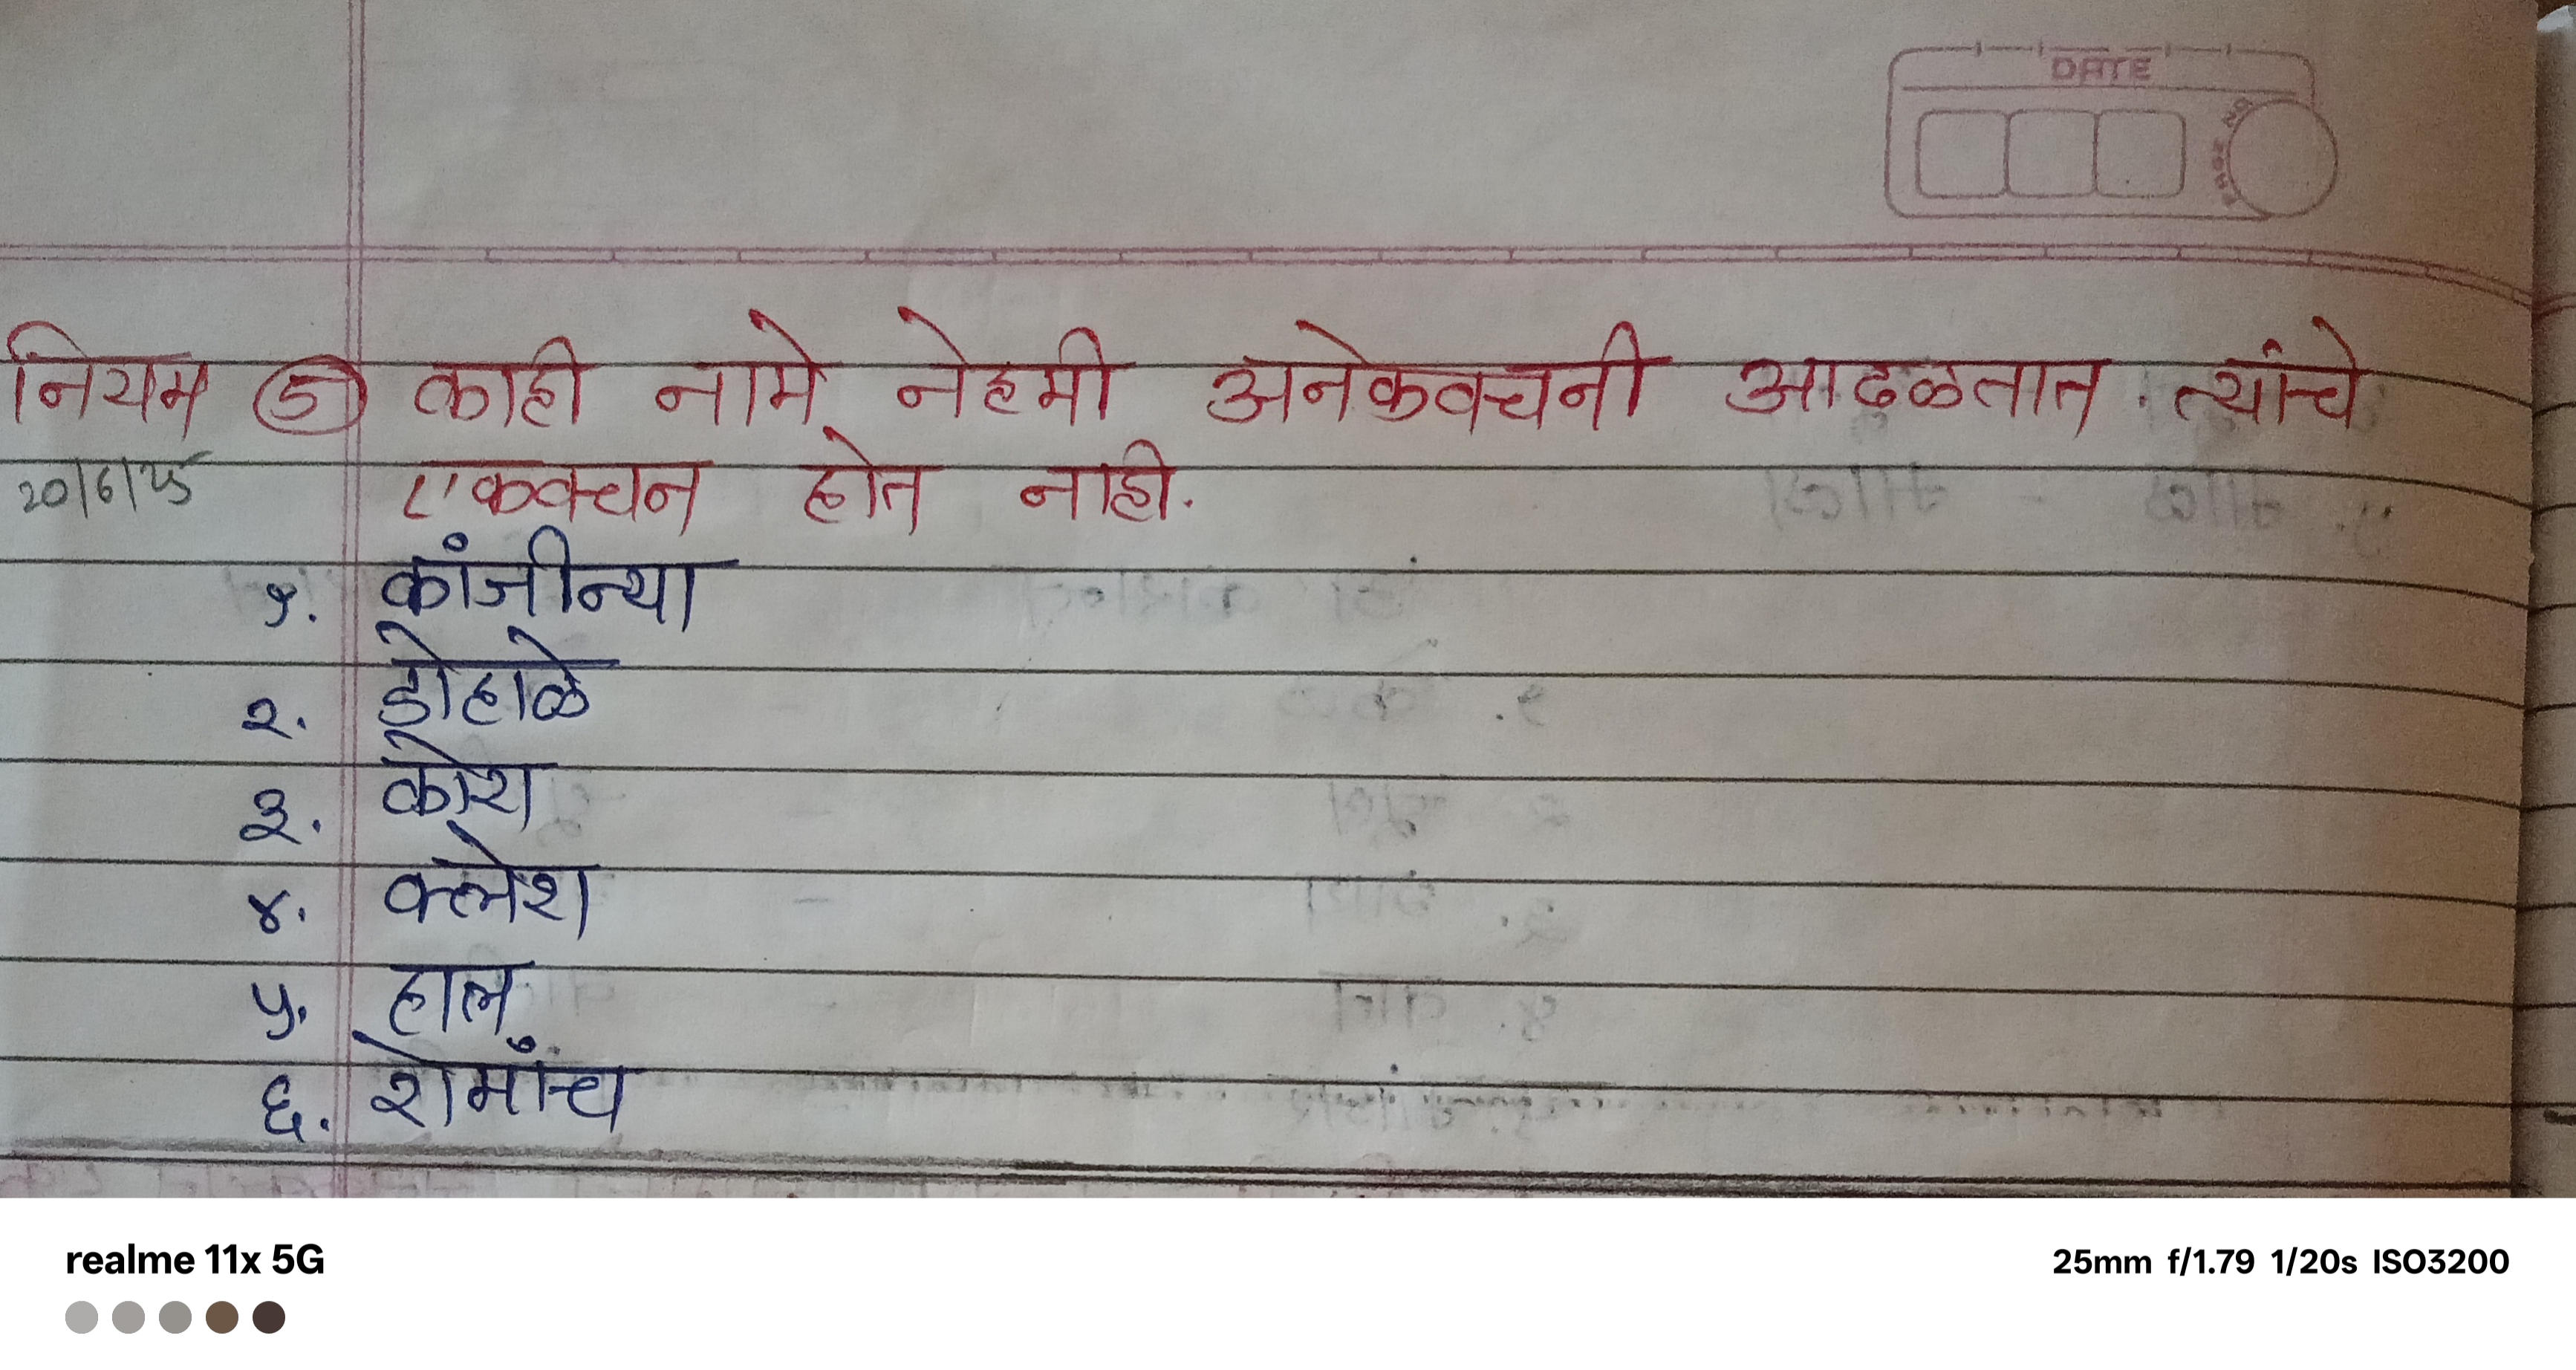 DATE
PAGE NO
नियम ५ काही नामे नेहमी अनेकवचनी आढळतात. त्यांचे
20/6/25 एकवचन होत नाही.
१. कांजीन्या
२. डोहाळे
३. कोश
४. क्लेश
५. हाल
६. रोमांच
realme 11x 5G
25mm f/1.79 1/20s ISO3200